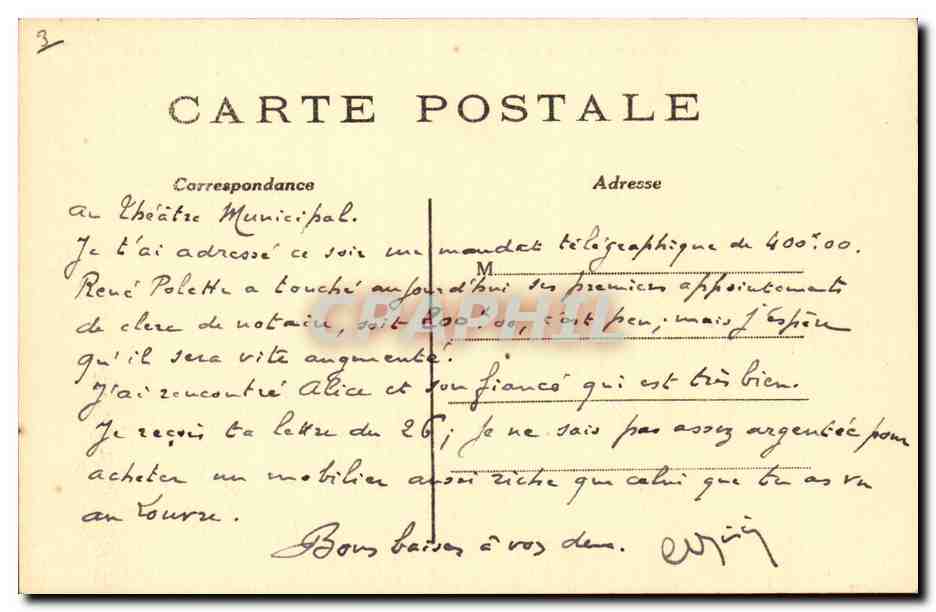 3
CARTE POSTALE
Correspondance
Adresse
au Théâtre Municipal.
Je t'ai adressé ce soir un mandat télégraphique de 400f.00.
M
René Polette a touché aujourd'hui ses premiers appointements
de clerc de notaire, soit 200f.00, c'est peu; mais j'espère
qu'il sera vite augmenté.
J'ai rencontré Alice et son fiancé qui est très bien.
Je reçois ta lettre du 26; je ne sais pas assez argentée pour
acheter un mobilier aussi riche que celui que tu as vu
au Louvre.
Bons baisers à vos deux.
CPAPHIL